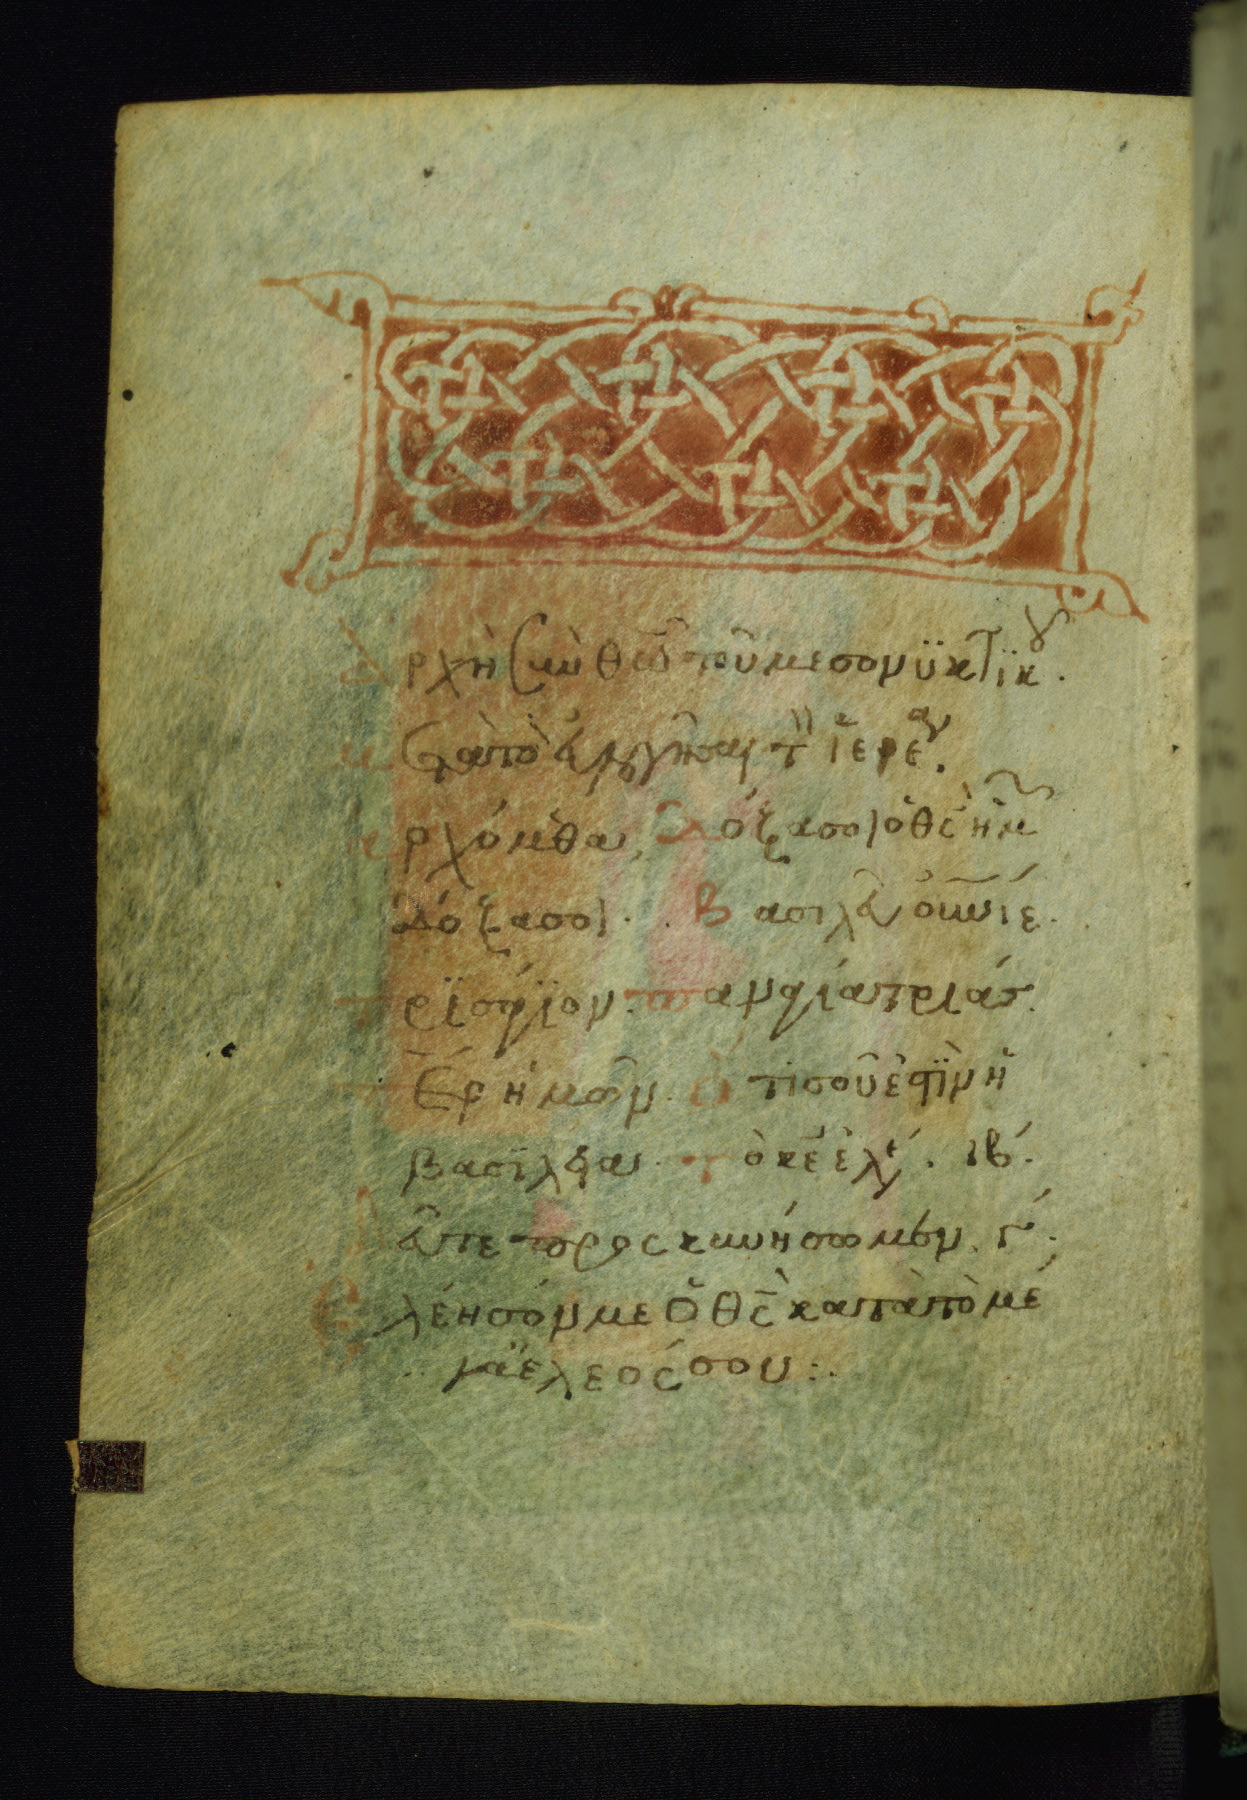 Ἀρχὴ σὺν Θω τοῦ μεσονυκτικου.
μετὰ τὸ ἄρξασθαι τὸν ἱερέαν.
ἀρχόμεθα, Δόξα σοι ὁ θς ἡμῶν
δόξα σοι. Βασιλεῦ οὐνιέ.
τρϊσάγϊον. παναγία τριάς.
Πέρ ἡμῶν. Ὅτι σοῦ ἐστϊν ἡ
βασϊλεία. τὸ κε ἐλέ. ιβ.
Δεῦτε προσκυνήσωμεν. γ.
Ἐλέησόν με ὁ θς κατὰ τὸ μέ
γα ἔλεός σου:.